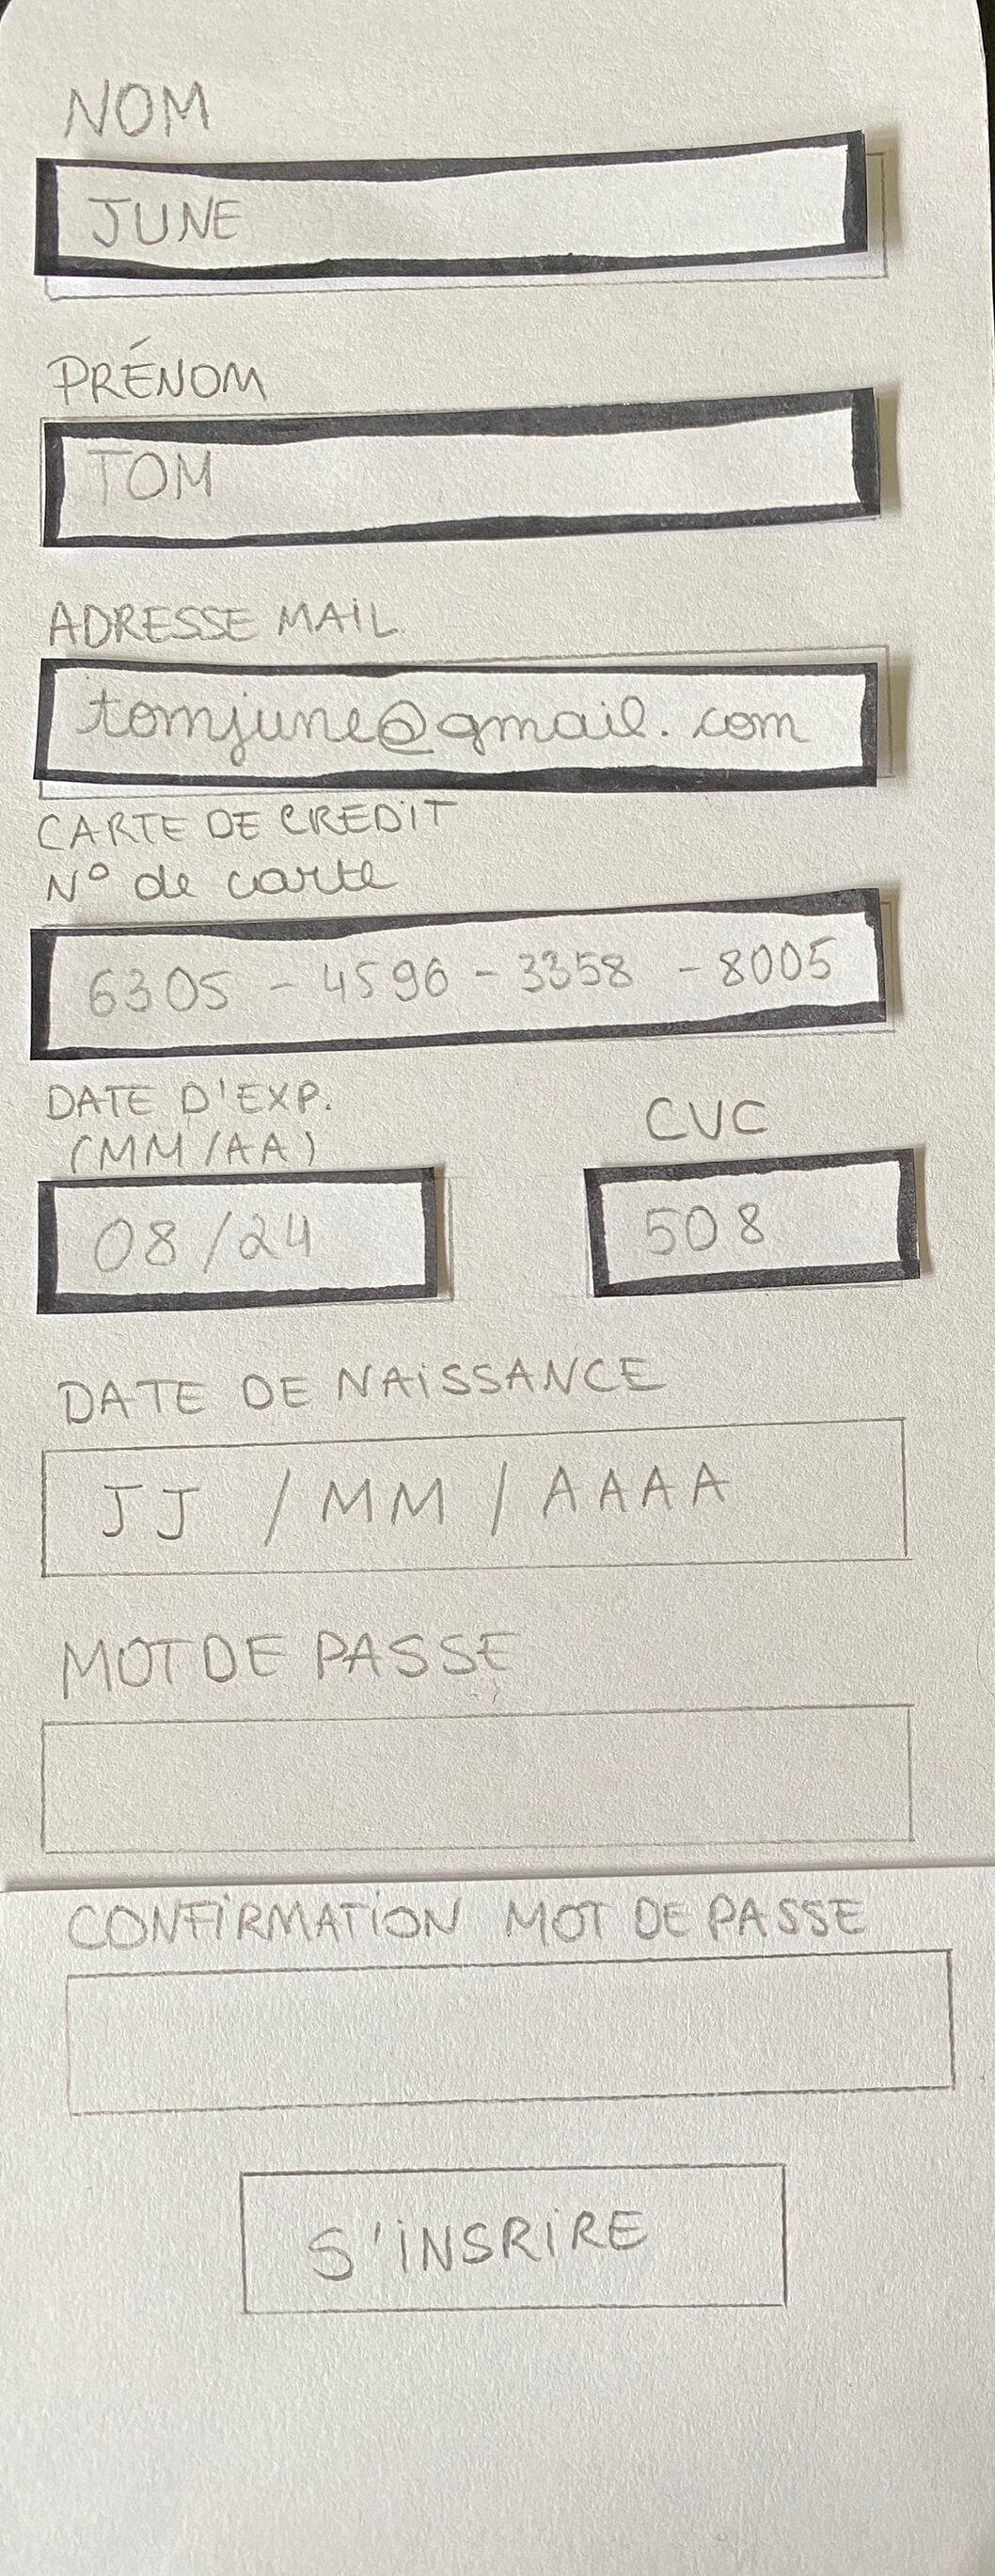 NOM
JUNE
PRÉNOM
TOM
ADRESSE MAIL.
tomjune@gmail.com
CARTE DE CREDIT
N° de carte
6305 - 4596 - 3358 - 8005
DATE D'EXP.
(MM/AA)
CVC
08/24
508
DATE DE NAISSANCE
JJ / MM / AAAA
MOT DE PASSE
CONFIRMATION MOT DE PASSE
S'INSRIRE